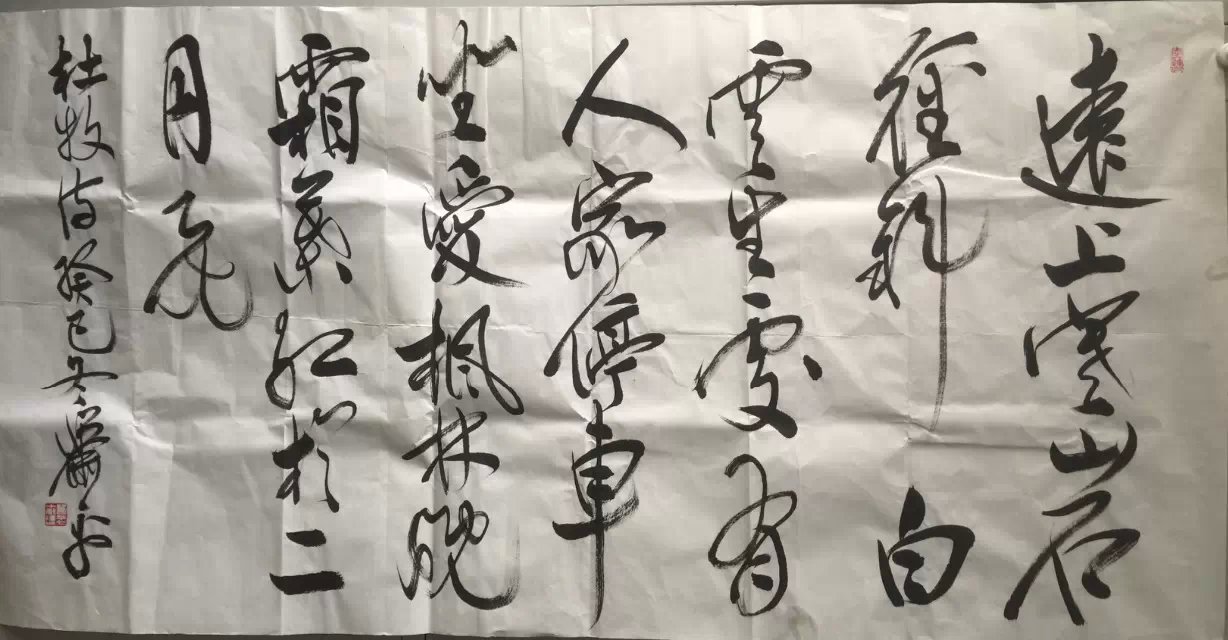 遠上寒山石
徑斜白
雲生處有
人家停車
坐愛楓林晚
霜葉紅於二
月花
杜牧诗癸巳冬